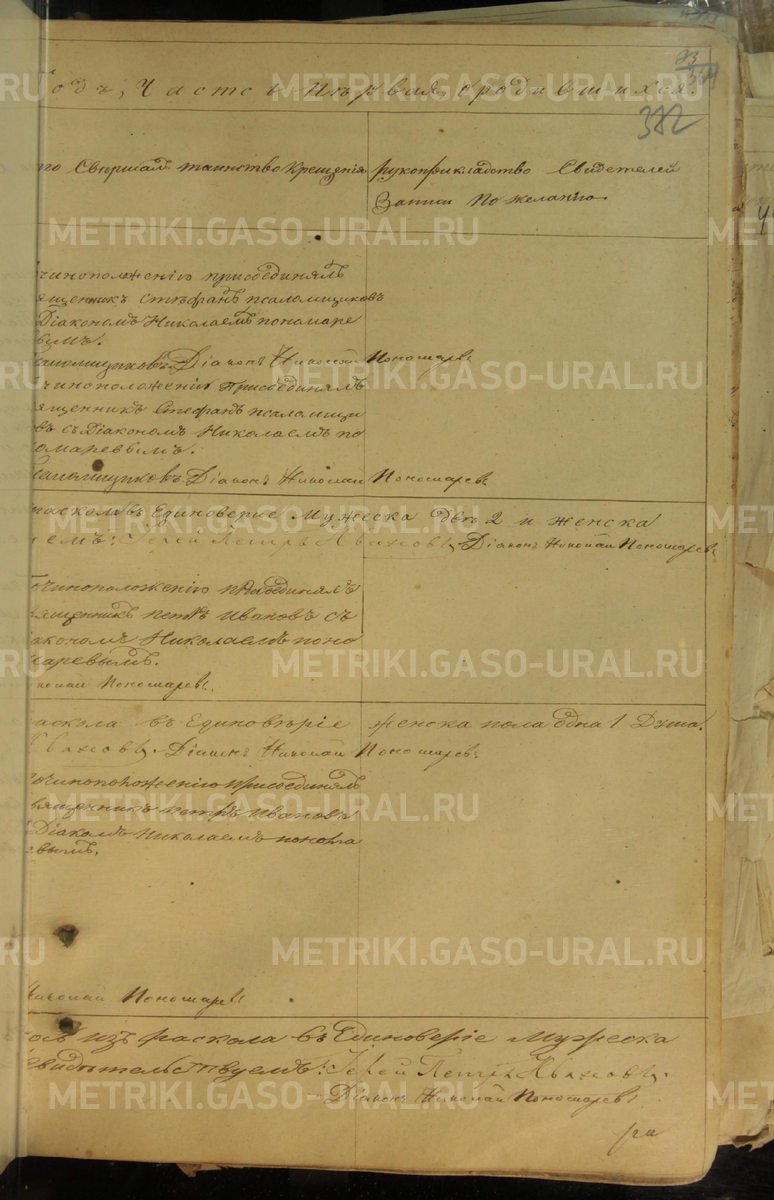 93
382
одъ, Часть Первая, о родившихся.
то Свершалъ таинство Крещенія
рукоприкладство Свидетелей
Записи По желанію.
чиноположенію присоединялъ
ященникъ Стефанъ псаломщиковъ
Діакономъ Николаемъ пономаре
вымъ.
Псаломщиковъ. Діаконъ Николай Пономаревъ
чиноположенію Присоединялъ
ященникъ Стефанъ псаломщи
въ съ Діакономъ Николаемъ по
омаревымъ.
Псаломщиковъ. Діаконъ Николай Пономаревъ
раскола въ Единоверие Мужеска две 2 и женска
емъ: Іерей Петръ Ивановъ. Діаконъ Николай Пономаревъ
чиноположенію присоединялъ
вященникъ петръ Ивановъ съ
іакономъ Николаемъ поно
маревымъ.
николай Пономаревъ.
раскола въ Единовѣріе женска пола одна 1 Душа.
Ивановъ. Діаконъ Николай Пономаревъ
очиноположению присоединялъ
вященникъ петръ Ивановъ
Діакомъ Николаемъ понома
евымъ.
Николай Пономаревъ
ось изъ раскола въ Единоверіе Мужеска
свидѣтельствуемъ: Іерей Петръ Ивановъ.
Діаконъ Николай Пономаревъ
METRIKI.GASO-URAL.RU